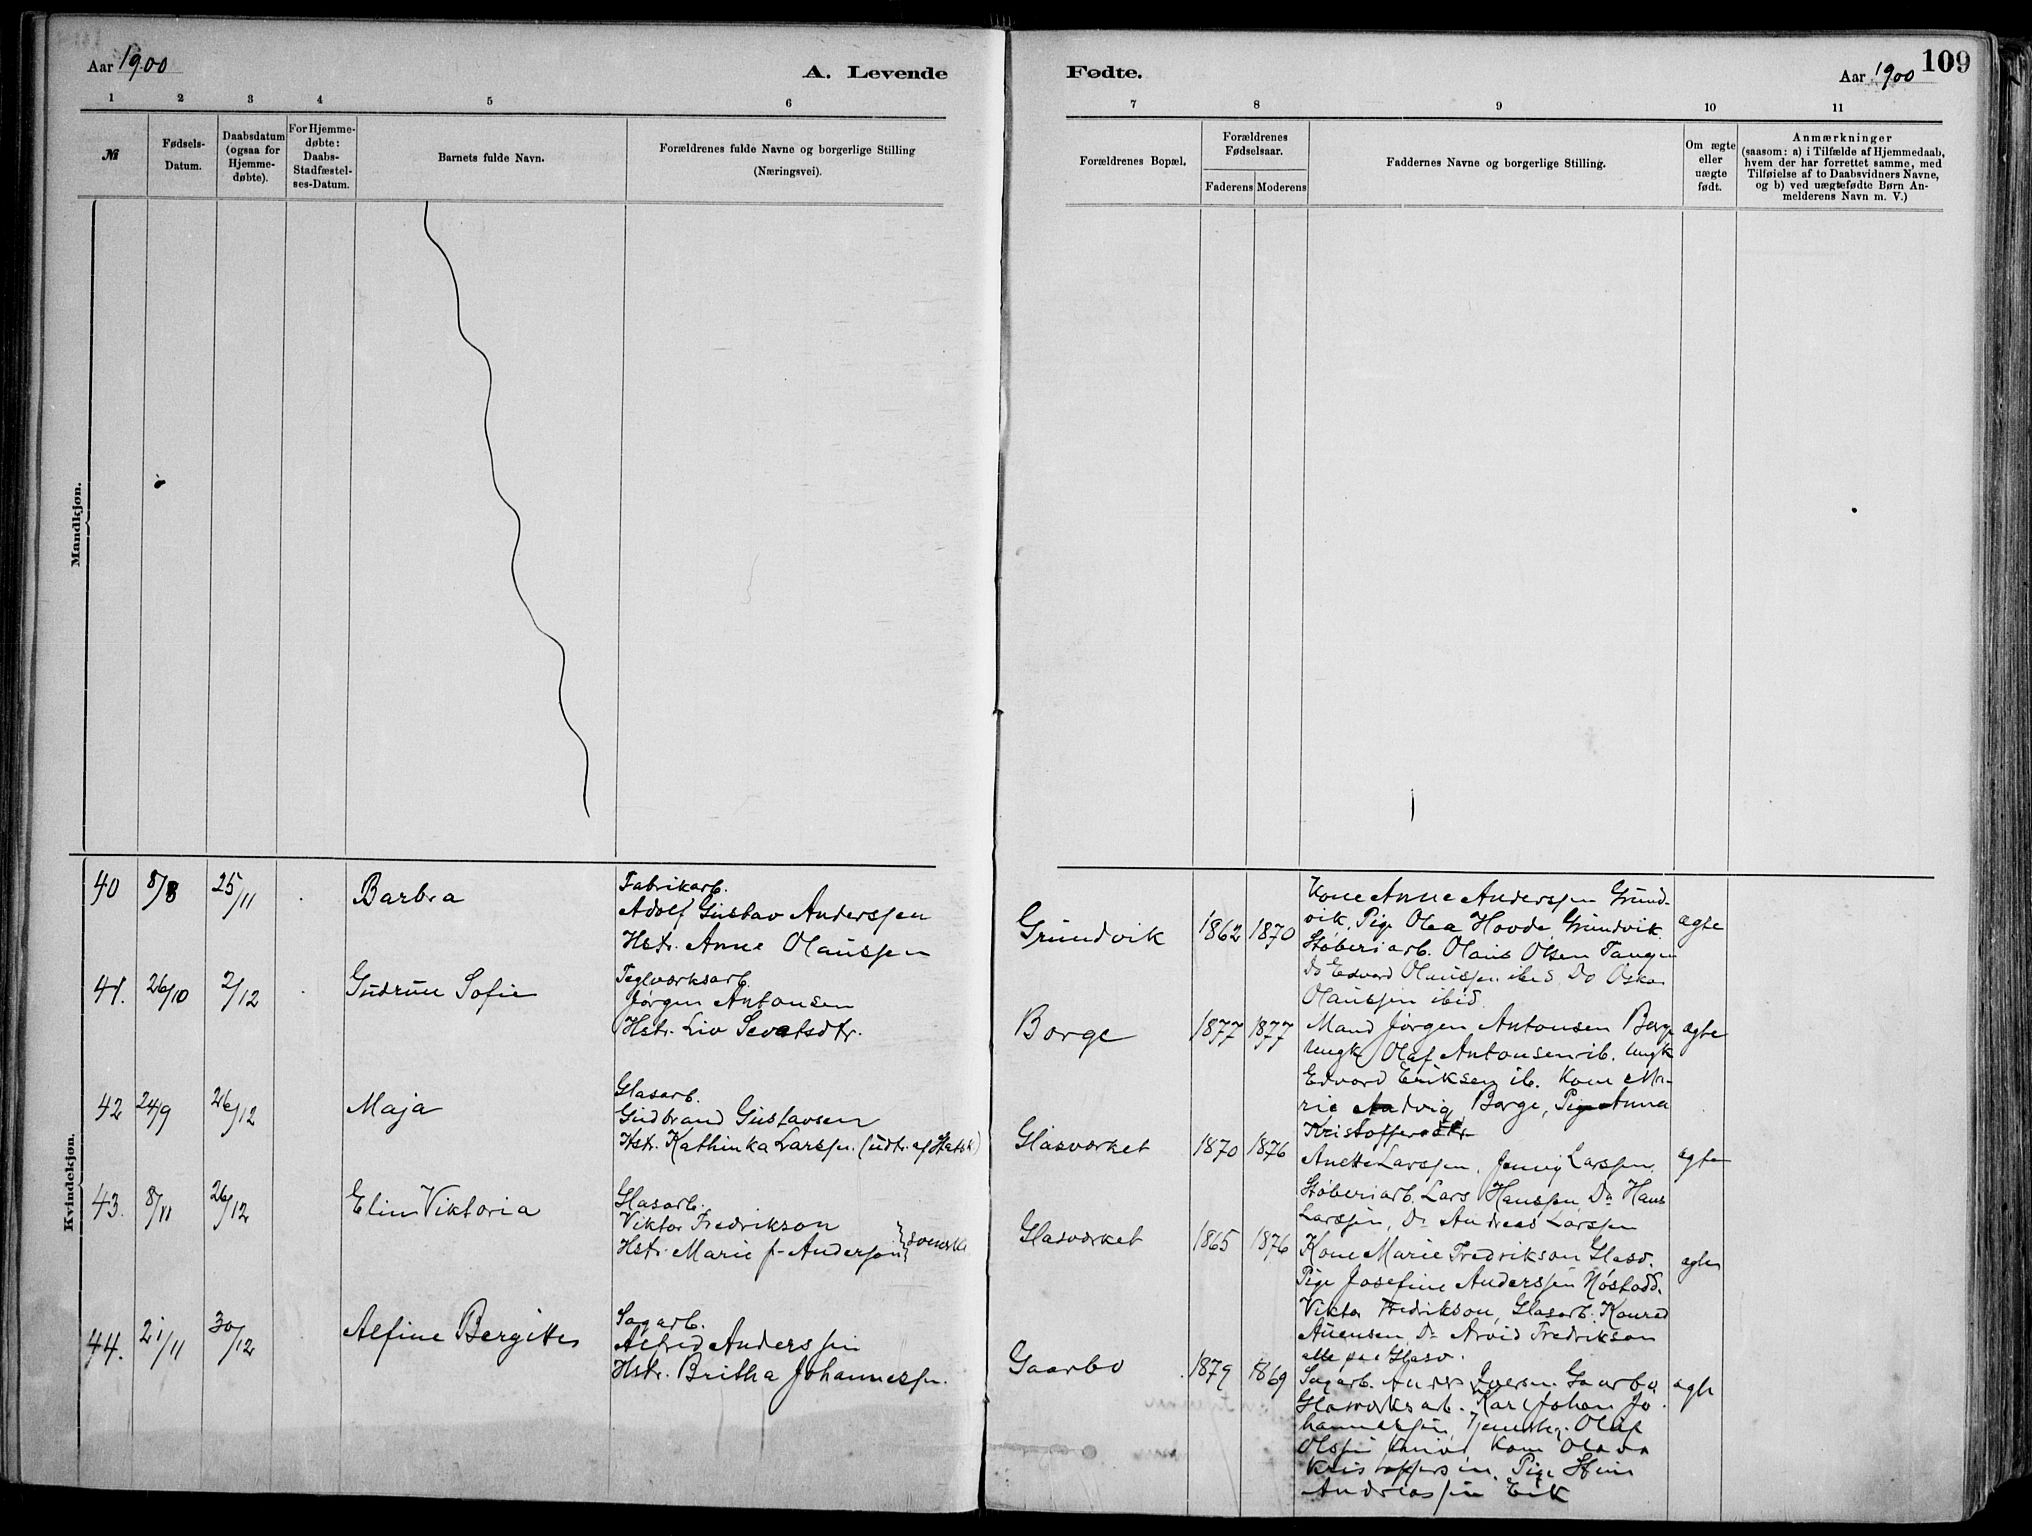 Aar 1900
A. Levende
Fødte.
Aar 1900
109
1
2
3
4
5
6
7
8
9
10
11
№
Fødsels-
Datum.
Daabsdatum
(ogsaa for
Hjemme-
døbte).
For Hjemme-
døbte:
Daabs-
Stadfæstel-
ses-Datum.
Barnets fulde Navn.
Forældrenes fulde Navne og borgerlige Stilling
(Næringsvei).
Forældrenes Bopæl.
Forældrenes
Fødselsaar.
Faderens
Moderens
Faddernes Navne og borgerlige Stilling.
Om ægte
eller
uægte
født.
Anmærkninger
(saasom: a) i Tilfælde af Hjemmedaab,
hvem der har forrettet samme, med
Tilføielse af to Daabsvidners Navne,
og b) ved uægtefødte Børn An-
melderens Navn m. V.)
Mandkjøn.
Kvindekjøn.
40
8/8
25/11
Barbra
Fabrikarb.
Adolf Gustav Anderssen
Hstr. Anne Olaussen
Grundvik
1862
1870
Kone Anne Anderssen Grund-
vik, Pige Olea Hovde, Grundvik.
Støberiarb. Olaus Olsen Tangen
Do Edvard Olaussen ibid. Do Oskar
Olaussen ibid.
ægte
41.
26/10
2/12
Gudrun Sofie
Teglværksarb.
Jørgen Antonsen
Hstr. Liv Sevatsdtr.
Borge
1877
1877
Mand Jørgen Antonsen Borge
Ungk. Olaf Antonsen ib. Ungk
Edvard Eriksen ib. Kone Ma-
rie Borge, Pige Anna
Kristoffersdtr.
ægte
42
24/9
26/12
Maja
Glasarb.
Gudbrand Gustavsen
Hstr. Kathinka Larssen. (udtr. af Statsk)
Glasværket
1870
1876
Anette Larssen, Jenny Larssen,
Støberiarb. Lars Hanssen, Do Hans
Larssen, Do Andreas Larssen
ægte
43.
8/11
26/12
Elin Viktoria
Glasarb.
Viktor Fredrikson
Hstr. Marie f. Andersson } svenske
Glasværket
1865
1876
Kone Marie Fredrikson Glasv.
Pige Josefine Anderssen Nøstodd.
Viktor Fredrikson, Glasarb. Konrad
Do Arvid Fredrikson
alle paa Glasv.
ægte
44.
21/11
30/12
Alfine Bergitte
Sagarb.
Alfred Anderssen
Hstr. Britha Johannessen.
Gaarbo
1879
1869
Sagarb. Anders Iversen Gaarbo
Glasværksarb. Karl Johan Jo-
hannessen, Olaf
Olssen Kone Olava
Kristoffersen, Pige Stine
Andreassen Eik
ægte